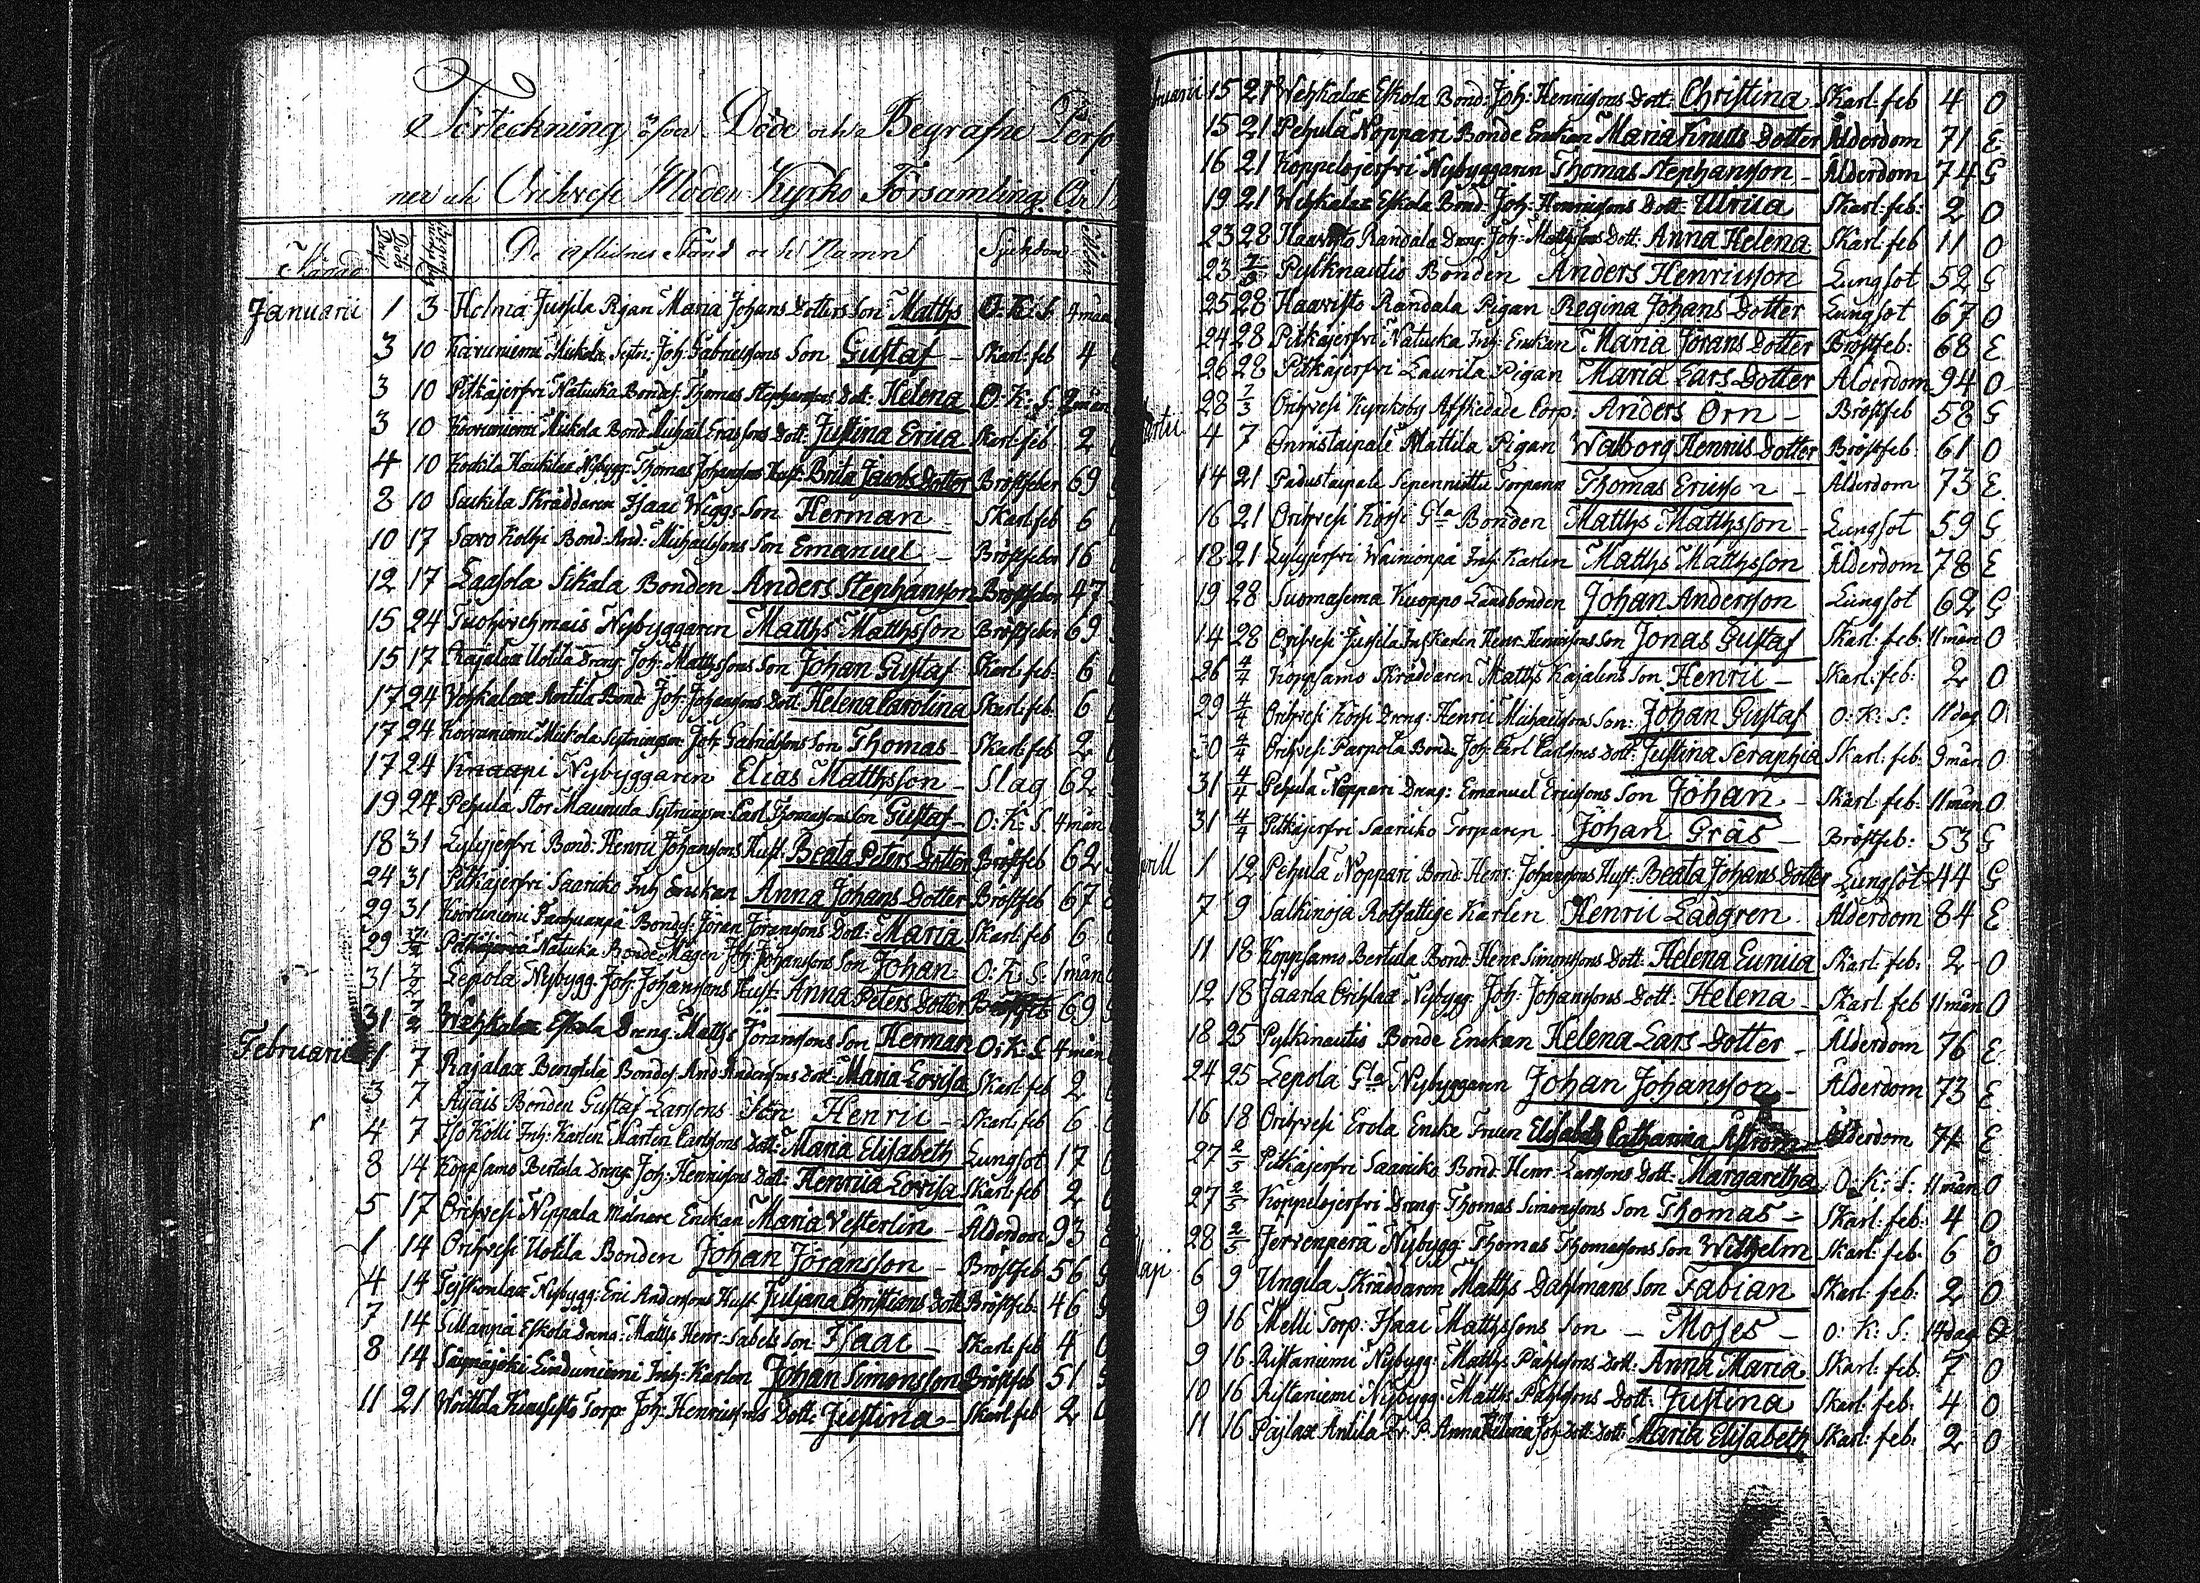 Förteckning öfver Döde och Begrafne Perso
ner uti Orihvesi Moder Kyrko Församling År
Månad Döds Dag De aflidnes Stånd och Namn Sjukdom Ålder
Januarii 1 3 Holma Jussila Pigan Maria Johans Dotters Son Matths O: K: S. 4 mån
3 10 Koivuniemi Mickola Sytn: Joh: Gabrielssons Son Gustaf - Skarl: feb 4
3 10 Pitkäjerfvi Natucka Bonds: Thomas Stephanssons Dott: Helena O: K: S. 2 mån
3 10 Koivuniemi Mickola Bond: Michaël Ericssons Dott: Justina Erica Skarl: feb 2
4 10 Thomas Johanssons Hust: Brita Jacobs Dotter Bröstfeber 69
8 10 Skräddaren Isaac Wiggs Son Herman - Skarl: feb 6
10 17 Bond: And: Michaelssons Son Emanuel - Bröstfeber 16
12 17 Laasola Sikala Bonden Anders Stephansson Bröstfeber 47
15 24 Nybyggaren Matths Matthsson Bröstfeber 69
15 17 Rajalax Uotila Dräng: Joh: Matthssons Son Johan Gustaf Skarl: feb: 6
17 24 Antila Bond: Joh: Johanssons Dott: Helena Carolina Skarl: feb: 6
17 24 Koivuniemi Mickola Joh: Gabrielssons Son Thomas - Skarl: feb 2
17 24 Knaapi Nybyggaren Elias Matthsson - Slag 62
19 24 Pehula Stor Maunula Carl Thomassons Son Gustaf - O: K: S. 4 mån
18 31 Bond: Henric Johanssons Hust: Beata Peters Dotter Bröstfeb 62
24 31 Pitkäjerfvi Saariko Inh: Enckan Anna Johans Dotter Bröstfeb 67
29 31 Koivuniemi Bonds: Jöran Jöranssons Dott: Maria Skarl: feb 6
29 7/2 Natucka Bonde Mågen Joh: Johanssons Son Johan. O: K: S: 1 mån
31 7/2 Lepola Nybygg: Joh: Johanssons Hust: Anna Peters Dotter 69
31 7/2 Eskola Dräng: Matths Jöranssons Son Herman O: K: S. 4 mån
Februarii 1 7 Rajalax Bengtila Bonds: And: Anderssons Dott: Maria Lovisa Skarl: feb 2
3 7 Äyäis Bonden Gustaf Larssons Son Henric - Skarl: feb 6
4 7 Iso Kolli Inh: Karlen Mårten Carlssons Dott: Maria Elisabeth Lungsot 17
8 14 Koppsamo Bertula Dräng: Joh: Henricssons Dott: Henrica Lovisa Skarl: feb 2
5 17 Orihvesi Nippala Mölnare Enckan Maria Vesterlin - Ålderdom 93
1 14 Orihvesi Uotila Bonden Johan Jöransson - Bröstfeb 56
4 14 Nybygg: Eric Anderssons Hust: Juliana Christians Dott Bröstfeb: 46
7 14 Sillanpä Eskola Dräng: Matths Henr: Sabels Son Isaac - Skarl: feb 4
8 14 Inh: Karlen Johan Simonsson Bröstfeb 51
11 21 Torp: Joh: Henricssons Dott: Justina - Skarl: feb 2
ruarii 15 21 Eskola Bond: Joh: Henricssons Dott: Christina Skarl: feb 4 O
15 21 Pehula Noppari Bonde Enckan Maria Knuts Dotter Ålderdom 71 E.
16 21 Koppelojerfvi Nybyggaren Thomas Stephansson - Ålderdom 74 G
19 21 Eskola Bond: Joh: Henricssons Dott: Ulrica Skarl: feb: 2 O
23 28 Haavisto Randala Dräng: Joh: Matthssons Dott: Anna Helena Skarl: feb 11 O
23 7/3 Pylknautio Bonden Anders Henricsson Lungsot 52 G
25 28 Haavisto Randala Pigan Regina Johans Dotter Lungsot 67 O
24 28 Pitkäjerfvi Natucka Inh: Enckan Maria Jörans Dotter Bröstfeb: 68 E.
26 28 Pitkäjerfvi Laurila Pigan Maria Lars Dotter Ålderdom 94 O
28 7/3 Orihvesi Kyrckoby Afskedade Corp: Anders Örn - Bröstfeb 58 G
artii 4 7 Onnistaipale Mattila Pigan Walborg Henrics Dotter Bröstfeb: 61 O
14 21 Padustaipale Torparen Thomas Ericsson - Ålderdom 73 E.
16 21 Orihvesi Körsi Gla Bonden Matths Matthsson - Lungsot 59 G
18 21 Wainionpä Inh: Karlen Matths Matthsson Ålderdom 78 E
19 28 Suomasema Kuoppo Landbonden Johan Andersson Lungsot 62 G
14 28 Orihvesi Jussila Inh: Karlen Henr: Henricssons Son Jonas Gustaf Skarl: feb: 11 mån O
26 4/4 Koppsamo Skräddaren Matths Kajalens Son Henric - Skarl: feb: 2 O
29 4/4 Orihvesi Körsi Dräng: Henric Michaelssons Son: Johan Gustaf O: K: S: 11 dag O
30 4/4 Orihvesi Parpola Bond: Joh: Carl Carlssons Dott: Justina Seraphia Skarl: feb: 9 mån O
31 4/4 Pehula Noppari Dräng: Emanuel Ericssons Son Johan - Skarl: feb: 11 mån O
31 4/4 Pitkäjerfvi Saariko Torparen Johan Gräs - Bröstfeb: 53 G
prill 1 12 Pehula Noppari Bond: Henr: Johanssons Hust: Beata Johans Dotter Lungsot 44 G
7 9 Salkinoja Rotfattige Karlen Henric Ladgren Ålderdom 84 E
11 18 Koppsamo Bertula Bond: Henr: Simonssons Dott: Helena Eunica Skarl: feb: 2 O
12 18 Jäärla Orihlax Nybygg: Joh: Johanssons Dott: Helena - Skarl: feb 11 mån O
18 25 Pylkinautio Bonde Enckan Helena Lars Dotter - Ålderdom 76 E.
24 25 Lepola Gla Nybyggaren Johan Johansson - Ålderdom 73 E.
16 18 Orihvesi Erola Encke Fruen Elisabeth Catharina Åström - Ålderdom 71 E
27 2/5 Pitkäjerfvi Saariko Bond: Henr: Larssons Dott: Margaretha O: K: S: 11 mån O
27 2/5 Koppelojerfvi Dräng: Thomas Simonssons Son Thomas - Skarl: feb: 4 O
28 2/5 Jervenperä Nybygg: Thomas Thomassons Son Wilhelm Skarl: feb: 6 O
aji 6 9 Ungila Skräddaren Matths Dahlmans Son Fabian Skarl: feb: 2 O
9 16 Melli Torp: Isaac Matthssons Son - Moses - O: K: S: 14 dag O
9 16 Ristaniemi Nybygg: Matths Påhlssons Dott: Anna Maria Skarl: feb: 7 O
10 16 Ristaniemi Nybygg: Matths Påhlssons Dott: Justina Skarl: feb: 4 O
11 16 Pajlax Antila P: Anna Joh: Dott: Dott: Maria Elisabeth Skarl: feb: 2 O